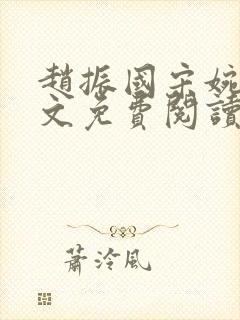 趙振國宋婉
文免費閱讀
蕭泠風